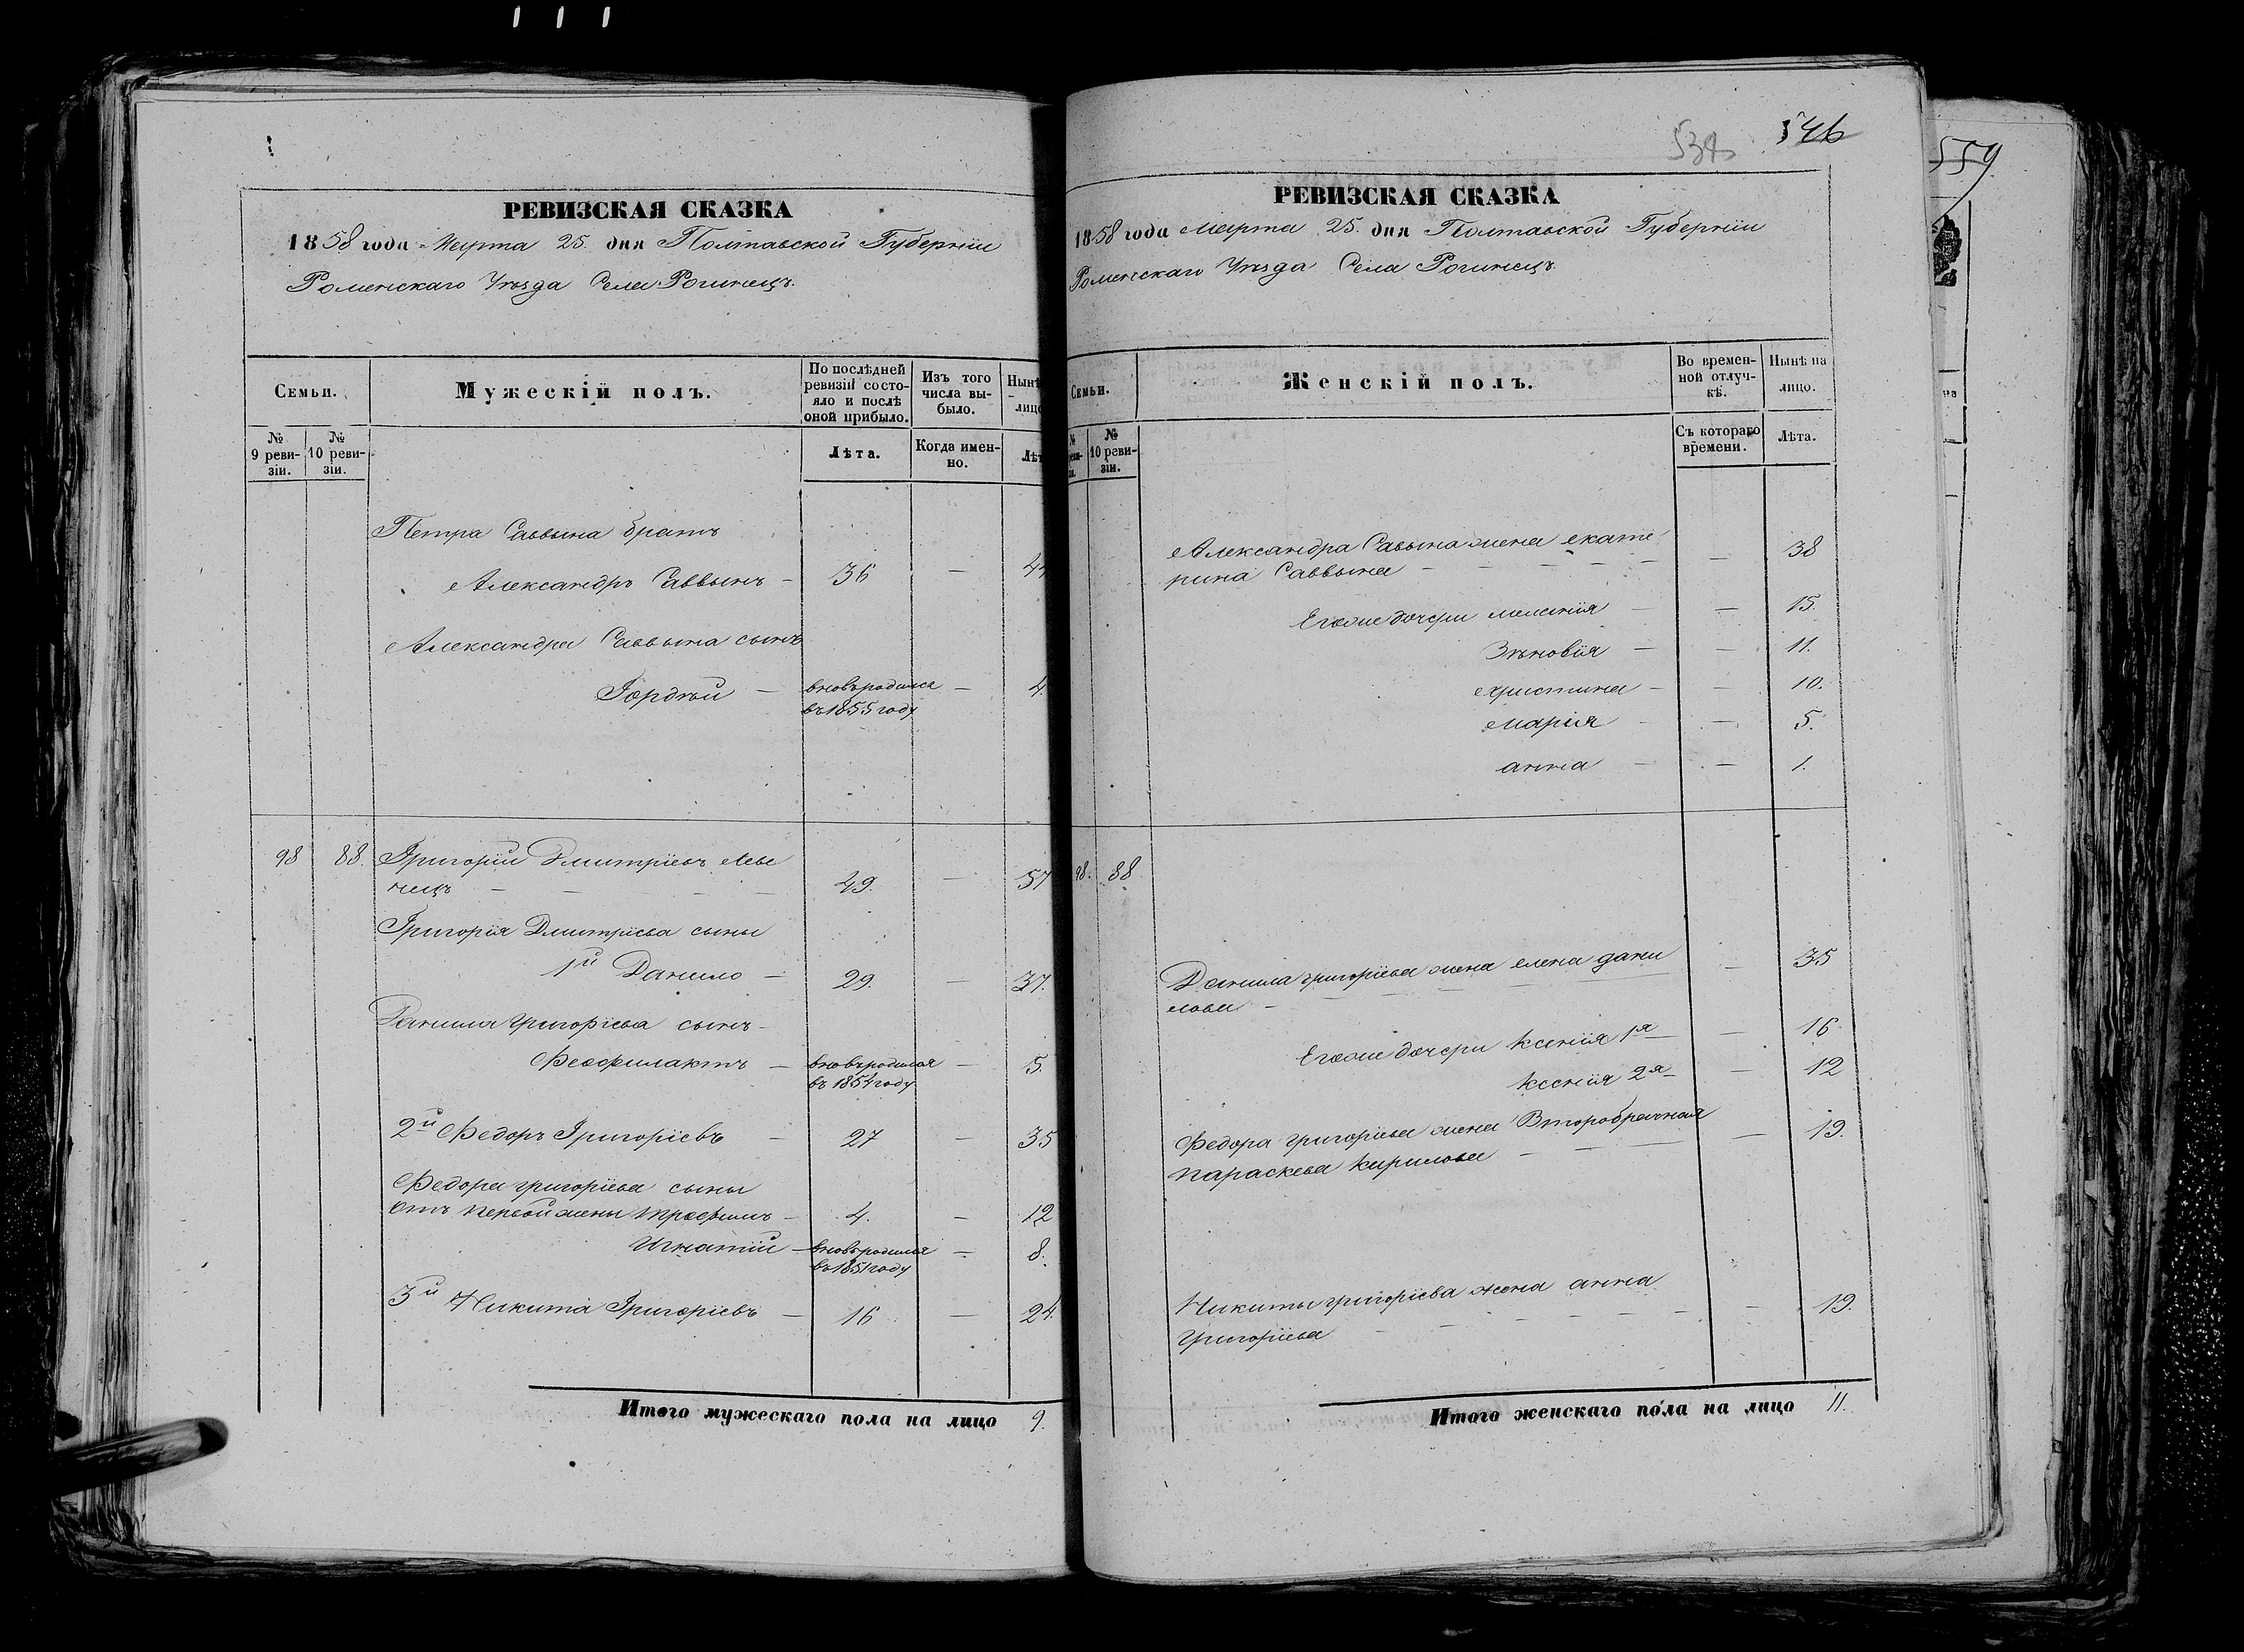 534 546
559
РЕВИЗСКАЯ СКАЗКА
1858 года Марта 25. дня Полтавской Губерніи
Роменскаго Уѣзда Села Рогинецъ.
Семьи.
Мужескій полъ.
По послѣдней ревизіи состояло и послѣ оной прибыло.
Изъ того числа выбыло.
Нынѣ
лицо
№ 9 ревизіи.
№ 10 ревизіи.
Лѣта.
Когда именно.
Лѣт
Петра Саввына братъ
Александръ Саввынъ – 36 – 44
Александра Саввына сынъ
Гордѣй – вновьродился – 4.
въ 1855 году
98 88. Григорій Дмитріевъ Леве
нецъ – – – – 49. – 57
Григорія Дмитріева сыны
1й Данило – 29. – 37.
Данила Григоріева сынъ
Феофилактъ – вновьродился – 5.
въ 1854 году
2й Федоръ Григоріевъ – 27 – 35
Федора григоріева сыны
Отъ первой жены трофимъ – 4. – 12
Игнатій – вновьродился – 8.
въ 1851 году
3й Никита Григоріевъ – 16 – 24.
Итого мужескаго пола на лицо 9.
РЕВИЗСКАЯ СКАЗКА
1858 года Марта 25. дня Полтавской Губерніи
Роменскаго Уѣзда Села Рогинецъ.
Семьи.
Женскій полъ.
Во временной отлучкѣ.
Нынѣ на лицо.
№ 10 ревизіи.
Съ котораго времени.
Лѣта.
Александра Савына жена екате
рина Саввына – – – – – 38
Егоже дочери меланія – – 15.
Зѣновія – – 11.
христина – – 10.
марія – – 5.
анна – – 1.
98. 88
Данила григоріева жена елена дани
лова – – – – – 35
Егоже дочери ксенія 1я – – 16.
ксенія 2я – – 12
Федора григоріева жена Второбрачная
параскева кирилова – – – 19.
Никиты григоріева жена анна
григоріева – – – – – 19.
Итого женскаго пола на лицо 11.